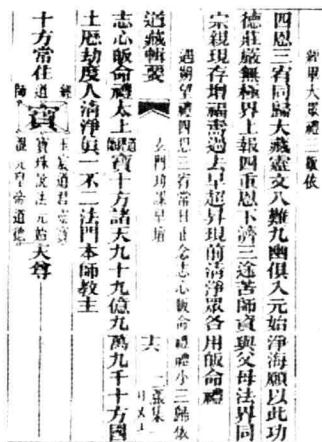 經畢大眾禮三皈依
四恩三宥同歸大藏靈文八難九幽俱入元始淨海願以此功
德莊嚴無極界上報四重恩下濟三途苦師資與父母法界同
宗親現存增福壽過去早超昇現前清淨眾各用皈命禮
遇朔望禮四恩三宥常日止念志心皈命禮禮小三歸依
道藏輯要
玄門功課早壇
六
張集
志心皈命禮太上 寶十方諸天九十九億九萬九千十方國
土歷劫度人清淨眞一不二法門本師教主
十方常住道經師寶 道君
寶珠說法元始天尊
元皇帝道德